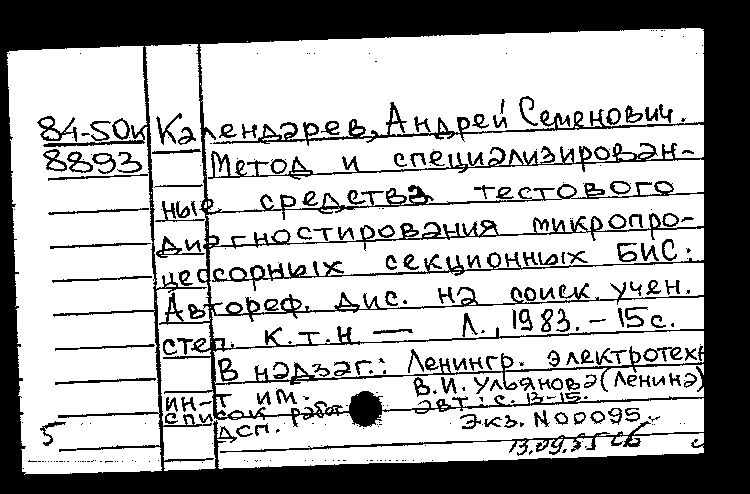 84-50к Календарев, Андрей Семенович.
8893 Метод и специализирован-
ные средства тестового
диагностирования микропро-
цессорных секционных БИС:
Автореф. дис. на соиск. учен.
степ. к.т.н. — Л., 1983. - 15 с.
В надзаг.: Ленингр. электротехн
ин-т им. В.И. Ульянова (Ленина)
список работ авт.: с. 13-15.
ДСП. Экз. N00095.
5 13.09.85